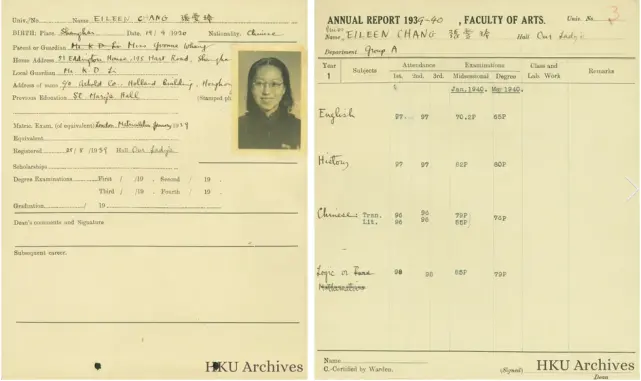 Univ./No. Name EILEEN CHANG 張愛玲
BIRTH: Place Shanghai Date 19/9 1920 Nationality Chinese
Parent or Guardian Mr. K. D. Li Miss Yvonne Whang
Home Address 51 Eddington House, 195 Hart Road, Shanghai
Local Guardian Mr. K. D. Li
Address of same Arnhold Co. Holland Building, Hongkong
Previous Education St. Mary's Hall (Stamped ph
Matric. Exam. (of equivalent) London Matriculation January 1939
Equivalent
Registered 29/8/1939 Hall Our Lady's
Scholarships
Degree Examinations First / /19 . Second / /19 .
Third / /19 . Fourth / /19 .
Graduation / 19
Dean's comments and Signature
Subsequent career.
HKU Archives
ANNUAL REPORT 1939-40, FACULTY OF ARTS. Univ. No. 3
Name EILEEN CHANG 張愛玲 Hall Our Lady's
Department Group A
Year 1 Subjects Attendance 1st. 2nd. 3rd. Examinations Midsessional Degree Class and Lab. Work Remarks
% Jan. 1940. May 1940.
English 97 97 70.2P 65P
History 97 97 82P 60P
Chinese: Tran. 96 96 79P 75P
Lit. 96 96 55P
Logic or Pure 98 98 65P 79P
Mathematics
Name
C.-Certified by Warden. (Signed)
Dean
HKU Archives